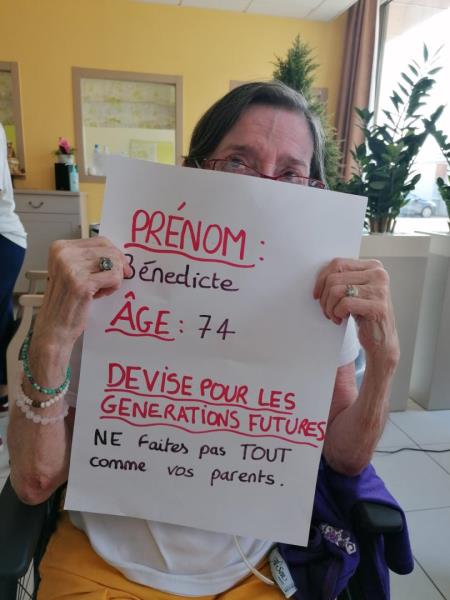 PRÉNOM :
Bénedicte
ÂGE : 74
DEVISE POUR LES
GENERATIONS FUTURES
NE faites pas TOUT
comme vos parents.